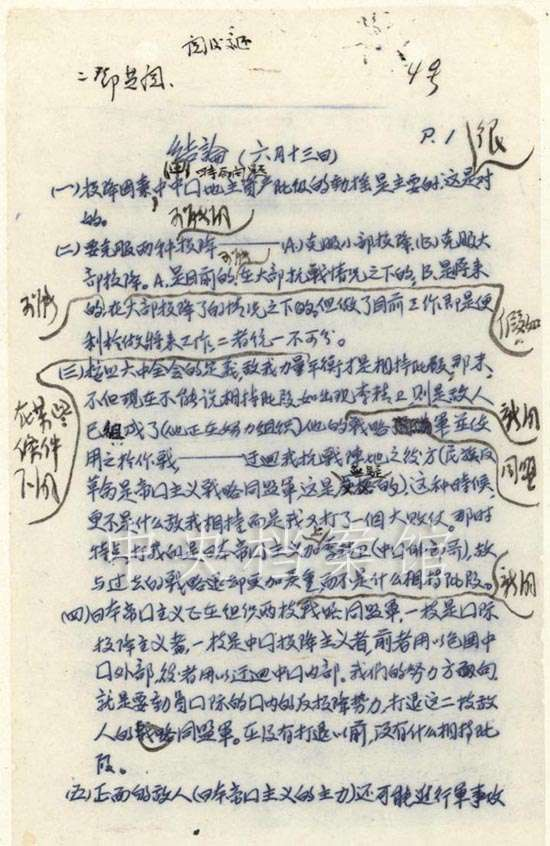 阅后送还
二、邓总阅、
4号
P. 1
很
结论(六月十三日)
(四)时局问题
(一)投降因素中中囗地主资产阶级的动摇是主要的,这是对
的。
(二)要克服两种投降——(A)克服小部投降,(B)克服大
部投降。A.是目前的,在大部抗战情况之下的,B.是将来
的,在大部投降了的情况之下的,但做了目前工作即是便
利于做将来工作,二者统一不可分。
假如
(三)按四大中全会的定义,敌我力量平衡才是相持阶段,那末,
不但现在不能说相持阶段,如出现李精卫则是敌人
在某些
条件
下
已组成了(他正在努力组织)他的战略同盟军并使
用之于作战——迂迴我抗战阵地之后方(民族反
同盟
革命是帝囗主义战略同盟军这是的),这种时候,
更不是什么敌我相持而是我又打了一个大败仗。那时
特点打我的是日本帝囗主义加李精卫(中囗佛朗哥),敌
与过去的战略退却更加严重而不是什么相持阶段。
(四)日本帝囗主义正在组织两枝战略同盟军,一枝是囗际
投降主义者,一枝是中囗投降主义者,前者用以包围中
囗外部,后者用以迂迴中囗内部。我们的努力方向
就是要动员囗际的囗内的反投降势力,打退这二枝敌
人的战略同盟军。在没有打退以前,没有什么相持阶
段。
(五)正面的敌人(日本帝囗主义的主力)还可能进行军事攻
中央档案馆